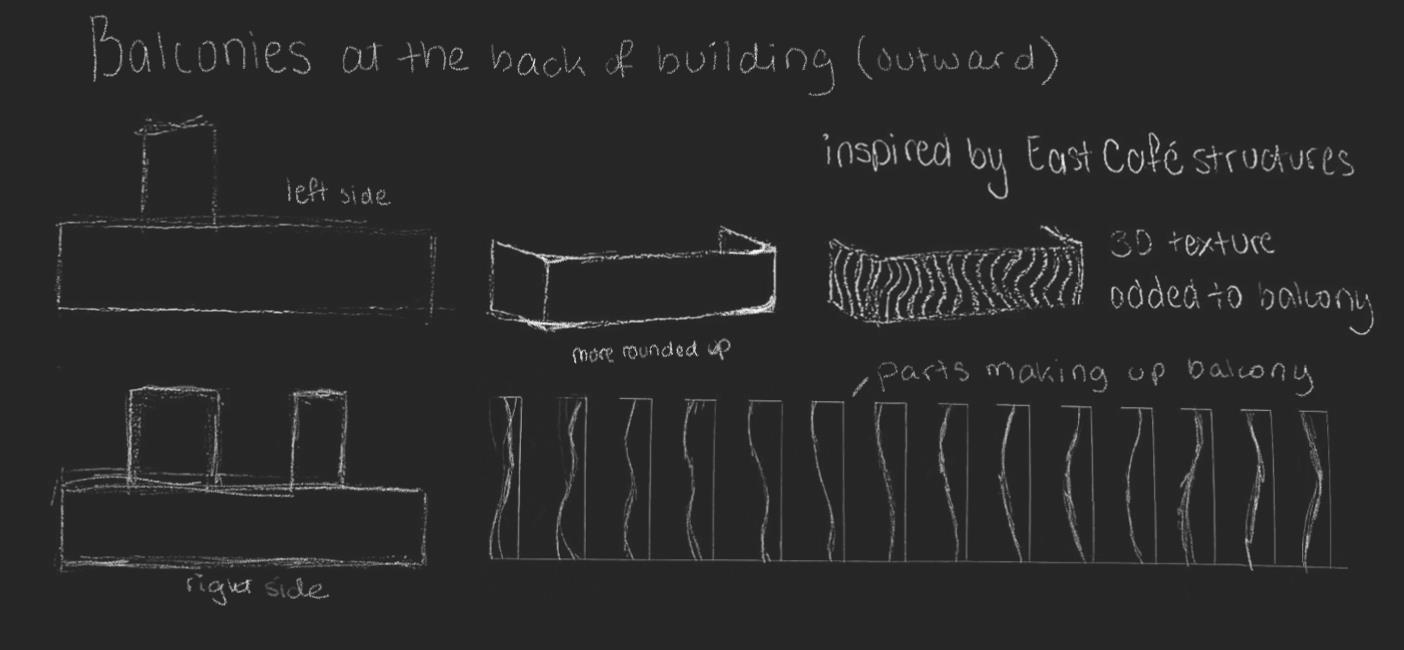 Balconies at the back of building (outward)
inspired by East Café structures
left side
3D texture
added to balcony
more rounded up
parts making up balcony
right side